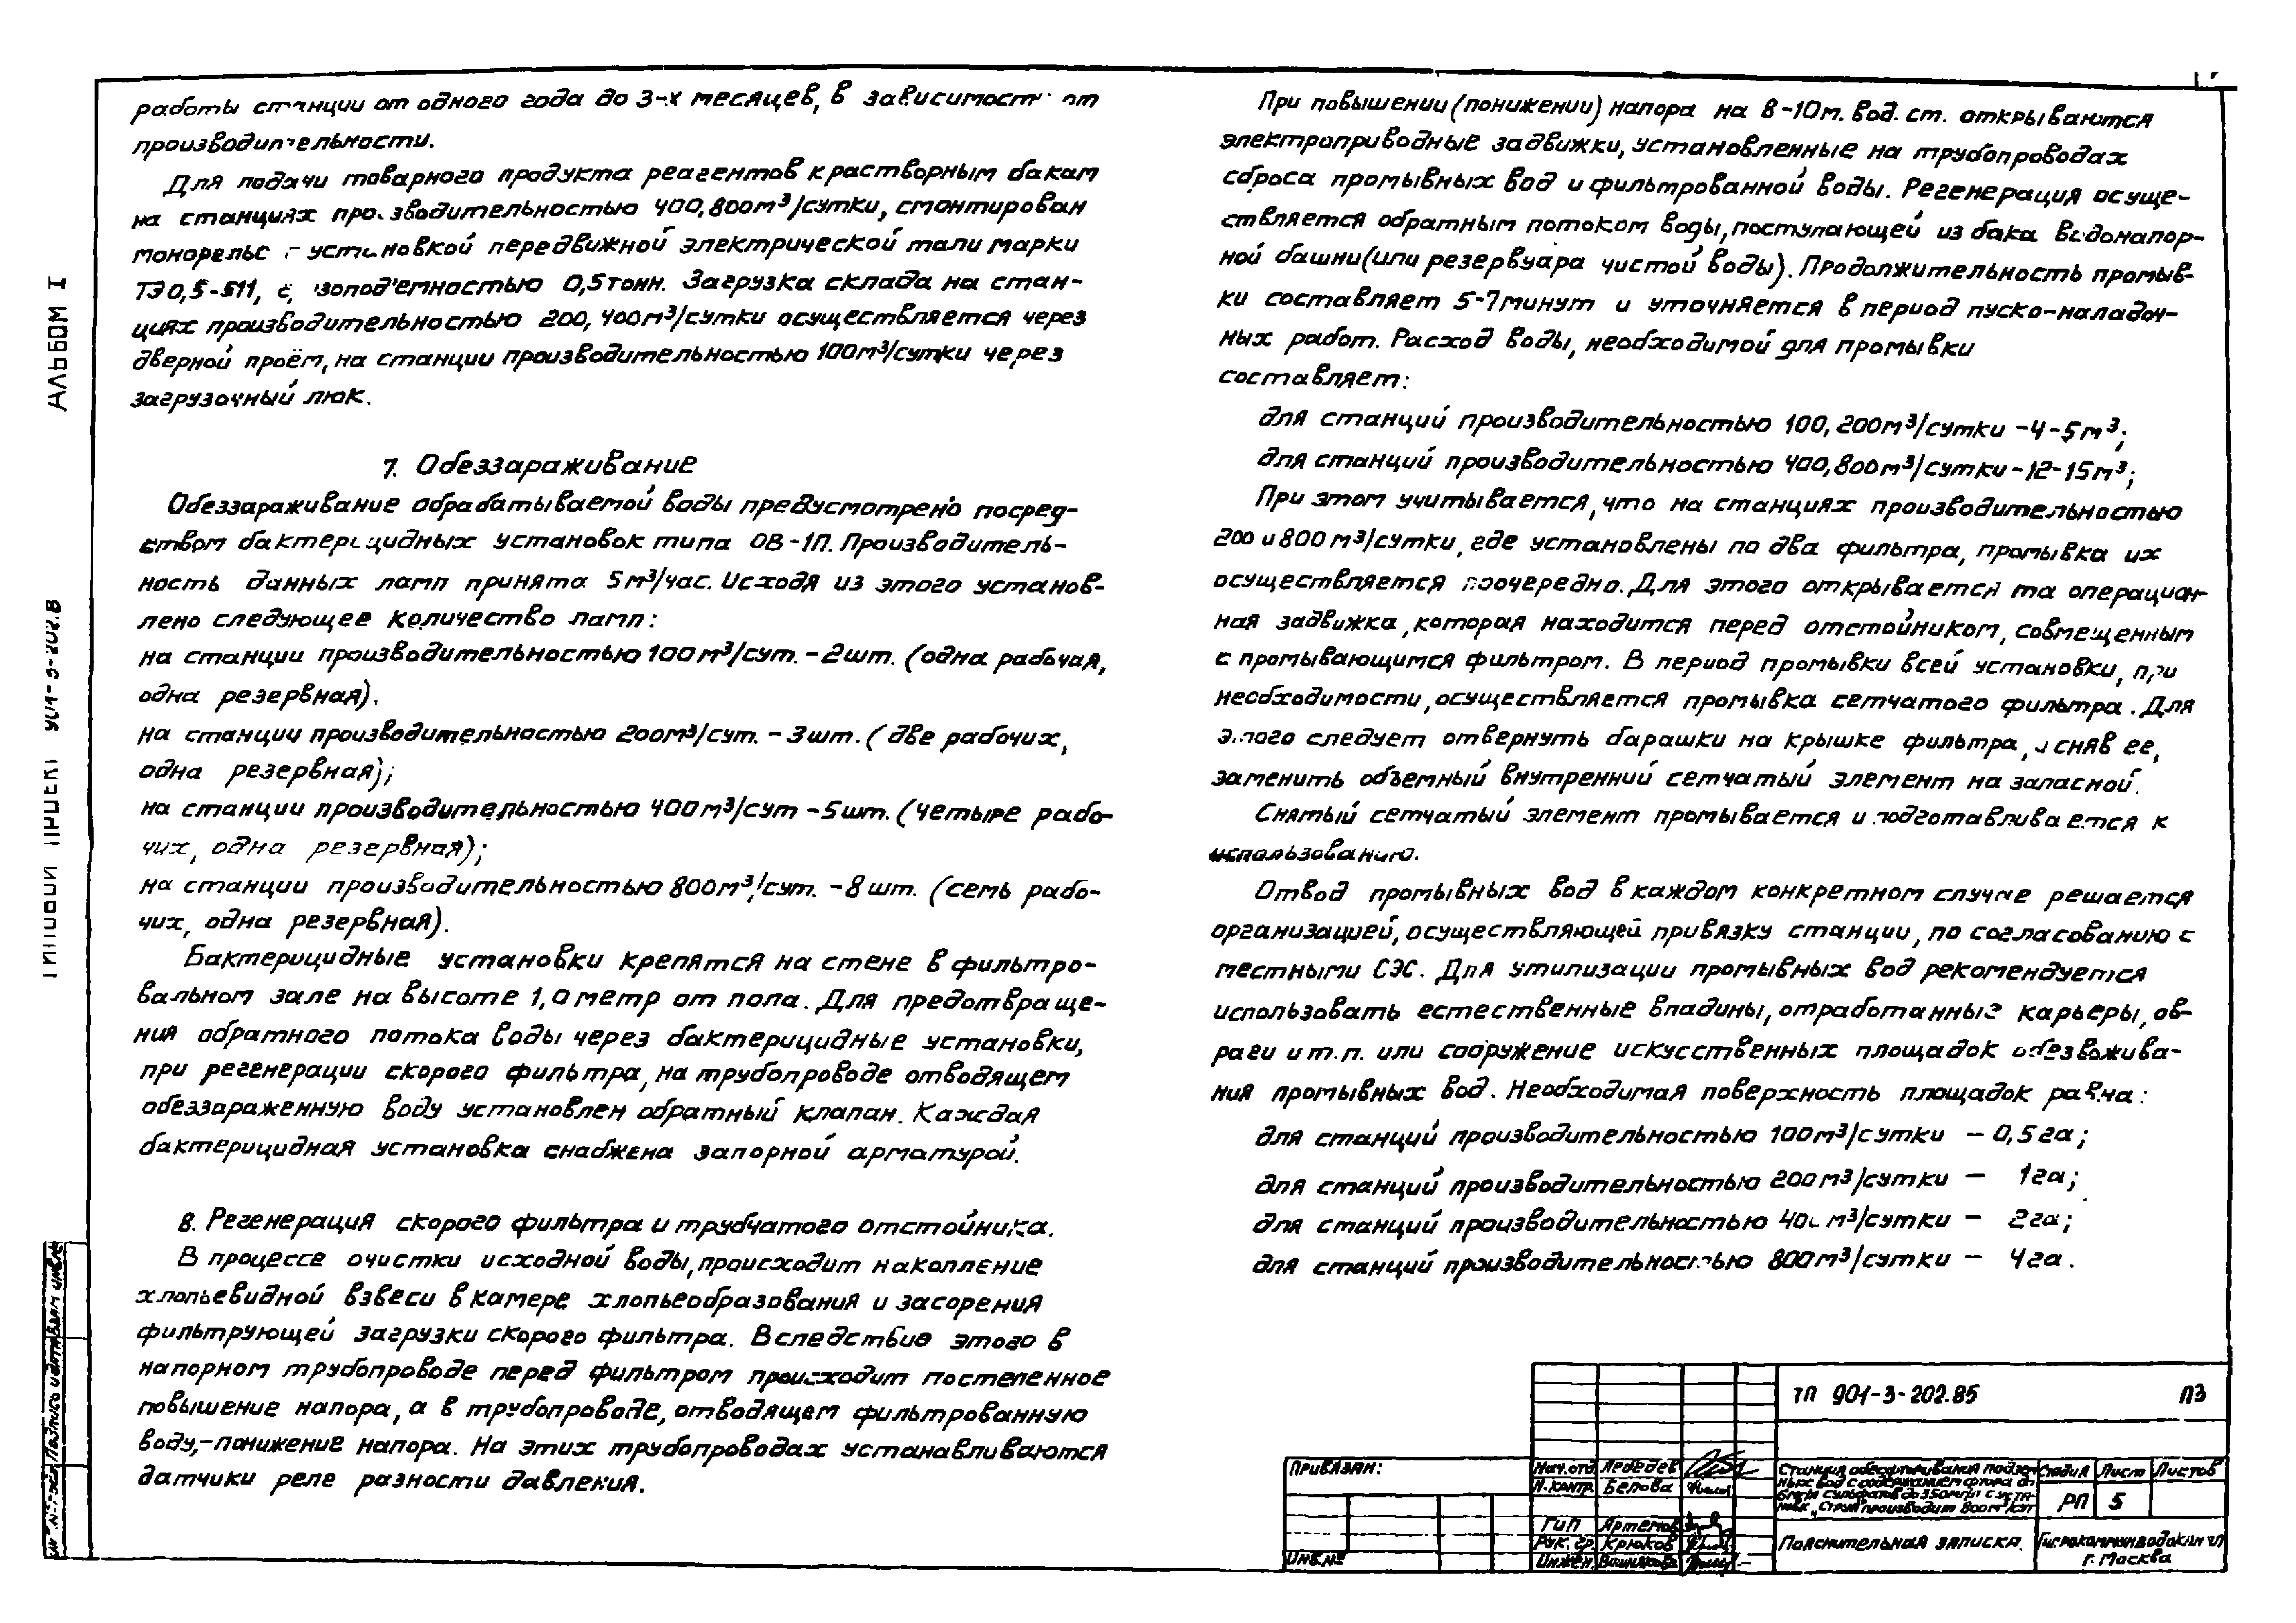 работы станции от одного года до 3-х месяцев, в зависимости от
производительности.
Для подачи товарного продукта реагентов к растворным бакам
на станциях производительностью 400,800м³/сутки, смонтирован
монорельс с установкой передвижной электрической тали марки
ТЭ0,5-511, с, грузоподъемностью 0,5тонн. Загрузка склада на стан-
циях производительностью 200, 400м³/сутки осуществляется через
дверной проём, на станции производительностью 100м³/сутки через
загрузочный люк.
7. Обеззараживание
Обеззараживание обрабатываемой воды предусмотрено посред-
ством бактерицидных установок типа ОВ-1П. Производитель-
ность данных ламп принята 5м³/час. Исходя из этого установ-
лено следующее количество ламп:
на станции производительностью 100м³/сут. - 2шт. (одна рабочая,
одна резервная).
на станции производительностью 200м³/сут. - 3шт. (две рабочих,
одна резервная);
на станции производительностью 400м³/сут - 5шт. (четыре рабо-
чих, одна резервная);
на станции производительностью 800м³/сут. - 8шт. (семь рабо-
чих, одна резервная).
Бактерицидные установки крепятся на стене в фильтро-
вальном зале на высоте 1,0 метр от пола. Для предотвраще-
ния обратного потока воды через бактерицидные установки,
при регенерации скорого фильтра, на трубопроводе отводящем
обеззараженную воду установлен обратный клапан. Каждая
бактерицидная установка снабжена запорной арматурой.
8. Регенерация скорого фильтра и трубчатого отстойника.
В процессе очистки исходной воды, происходит накопление
хлопьевидной взвеси в камере хлопьеобразования и засорения
фильтрующей загрузки скорого фильтра. Вследствие этого в
напорном трубопроводе перед фильтром происходит постепенное
повышение напора, а в трубопроводе, отводящем фильтрованную
воду,-понижение напора. На этих трубопроводах устанавливаются
датчики реле разности давления.
При повышении (понижении) напора на 8-10м. вод. ст. открываются
электроприводные задвижки, установленные на трубопроводах
сброса промывных вод и фильтрованной воды. Регенерация осуще-
ствляется обратным потоком воды, поступающей из бака водонапор-
ной башни (или резервуара чистой воды). Продолжительность промыв-
ки составляет 5-7минут и уточняется в период пуско-наладоч-
ных работ. Расход воды, необходимой для промывки
составляет:
для станций производительностью 100, 200м³/сутки -4-5м³;
для станций производительностью 400,800м³/сутки-12-15м³;
При этом учитывается, что на станциях производительностью
200 и 800м³/сутки, где установлены по два фильтра, промывка их
осуществляется поочередно. Для этого открывается та операцион-
ная задвижка, которая находится перед отстойником, совмещенным
с промывающимся фильтром. В период промывки всей установки, при
необходимости, осуществляется промывка сетчатого фильтра. Для
этого следует отвернуть барашки на крышке фильтра, и сняв ее,
заменить объемный внутренний сетчатый элемент на запасной.
Снятый сетчатый элемент промывается и подготавливается к
использованию.
Отвод промывных вод в каждом конкретном случае решается
организацией, осуществляющей привязку станции, по согласованию с
местными СЭС. Для утилизации промывных вод рекомендуется
использовать естественные впадины, отработанные карьеры, ов-
раги и т.п. или сооружение искусственных площадок обезвожива-
ния промывных вод. Необходимая поверхность площадок равна:
для станций производительностью 100м³/сутки - 0,5га;
для станций производительностью 200м³/сутки - 1га;
для станций производительностью 400м³/сутки - 2га;
для станций производительностью 800м³/сутки - 4га.
АЛЬБОМ I
ТИПОВОЙ ПРОЕКТ 901-3-202.85
Подпись и дата Взам инв№
ТП 901-3-202.85 ПЗ
Привязан:
Инв.№
Нач.отд. Лебедев
Н.контр. Белова
ГИП Артемов
Рук.гр. Крюков
Инжен.
Станция обесфторивания подзем-
ных вод с содержанием фтора до
сульфатов до 350мг/л с уста-
новк. „Струя" производит. 800м³/сут
Стадия Лист Листов
РП 5
Пояснительная записка.
Гипрокоммунводоканал
г. Москва